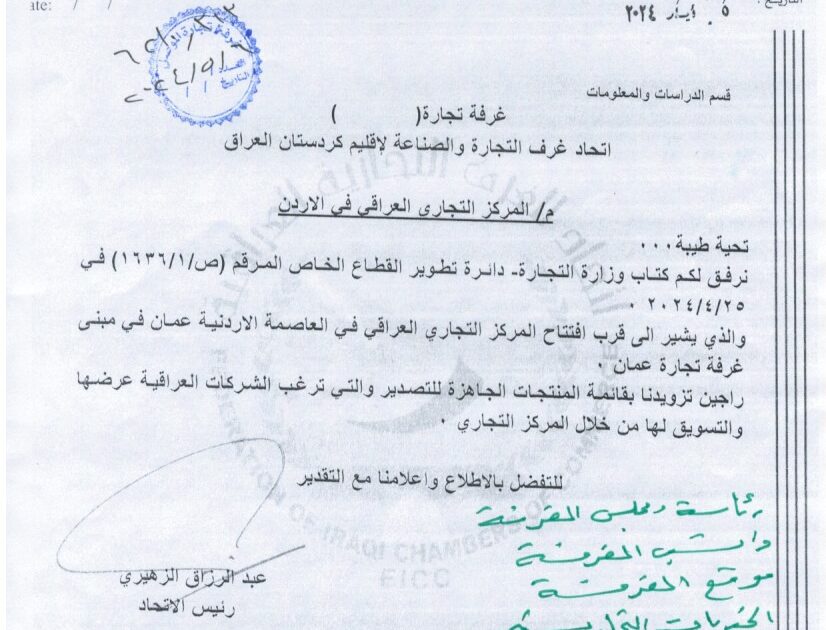 ate: / /
التاريخ :
٥ ايار ٢٠٢٤
غرفة تجارة الموصل
العدد
التاريخ / /
قسم الدراسات والمعلومات
غرفة تجارة( )
اتحاد غرف التجارة والصناعة لإقليم كردستان العراق
م/ المركز التجاري العراقي في الاردن
تحية طيبة ...
نرفق لكم كتاب وزارة التجارة- دائرة تطوير القطاع الخاص المرقم (ص/١٦٣٦/١) في
٢٠٢٤/٤/٢٥ .
والذي يشير الى قرب افتتاح المركز التجاري العراقي في العاصمة الاردنية عمان في مبنى
غرفة تجارة عمان .
راجين تزويدنا بقائمة المنتجات الجاهزة للتصدير والتي ترغب الشركات العراقية عرضها
والتسويق لها من خلال المركز التجاري .
للتفضل بالاطلاع واعلامنا مع التقدير
رئاسة ومجلس الغرفة
الغرفة
موقع الغرفة
عبد الرزاق الزهيري
رئيس الاتحاد
FEDERATION OF IRAQI CHAMBERS OF COMMERCE
FICC